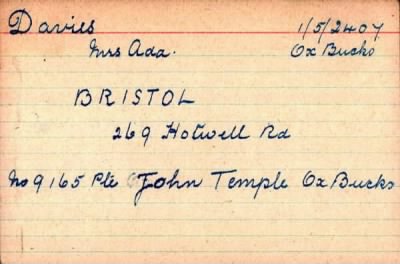 Davies 1/5/2407
Mrs Ada. Ox Bucks
BRISTOL
269 Hotwell Rd
No 9165 Pte John Temple Ox Bucks